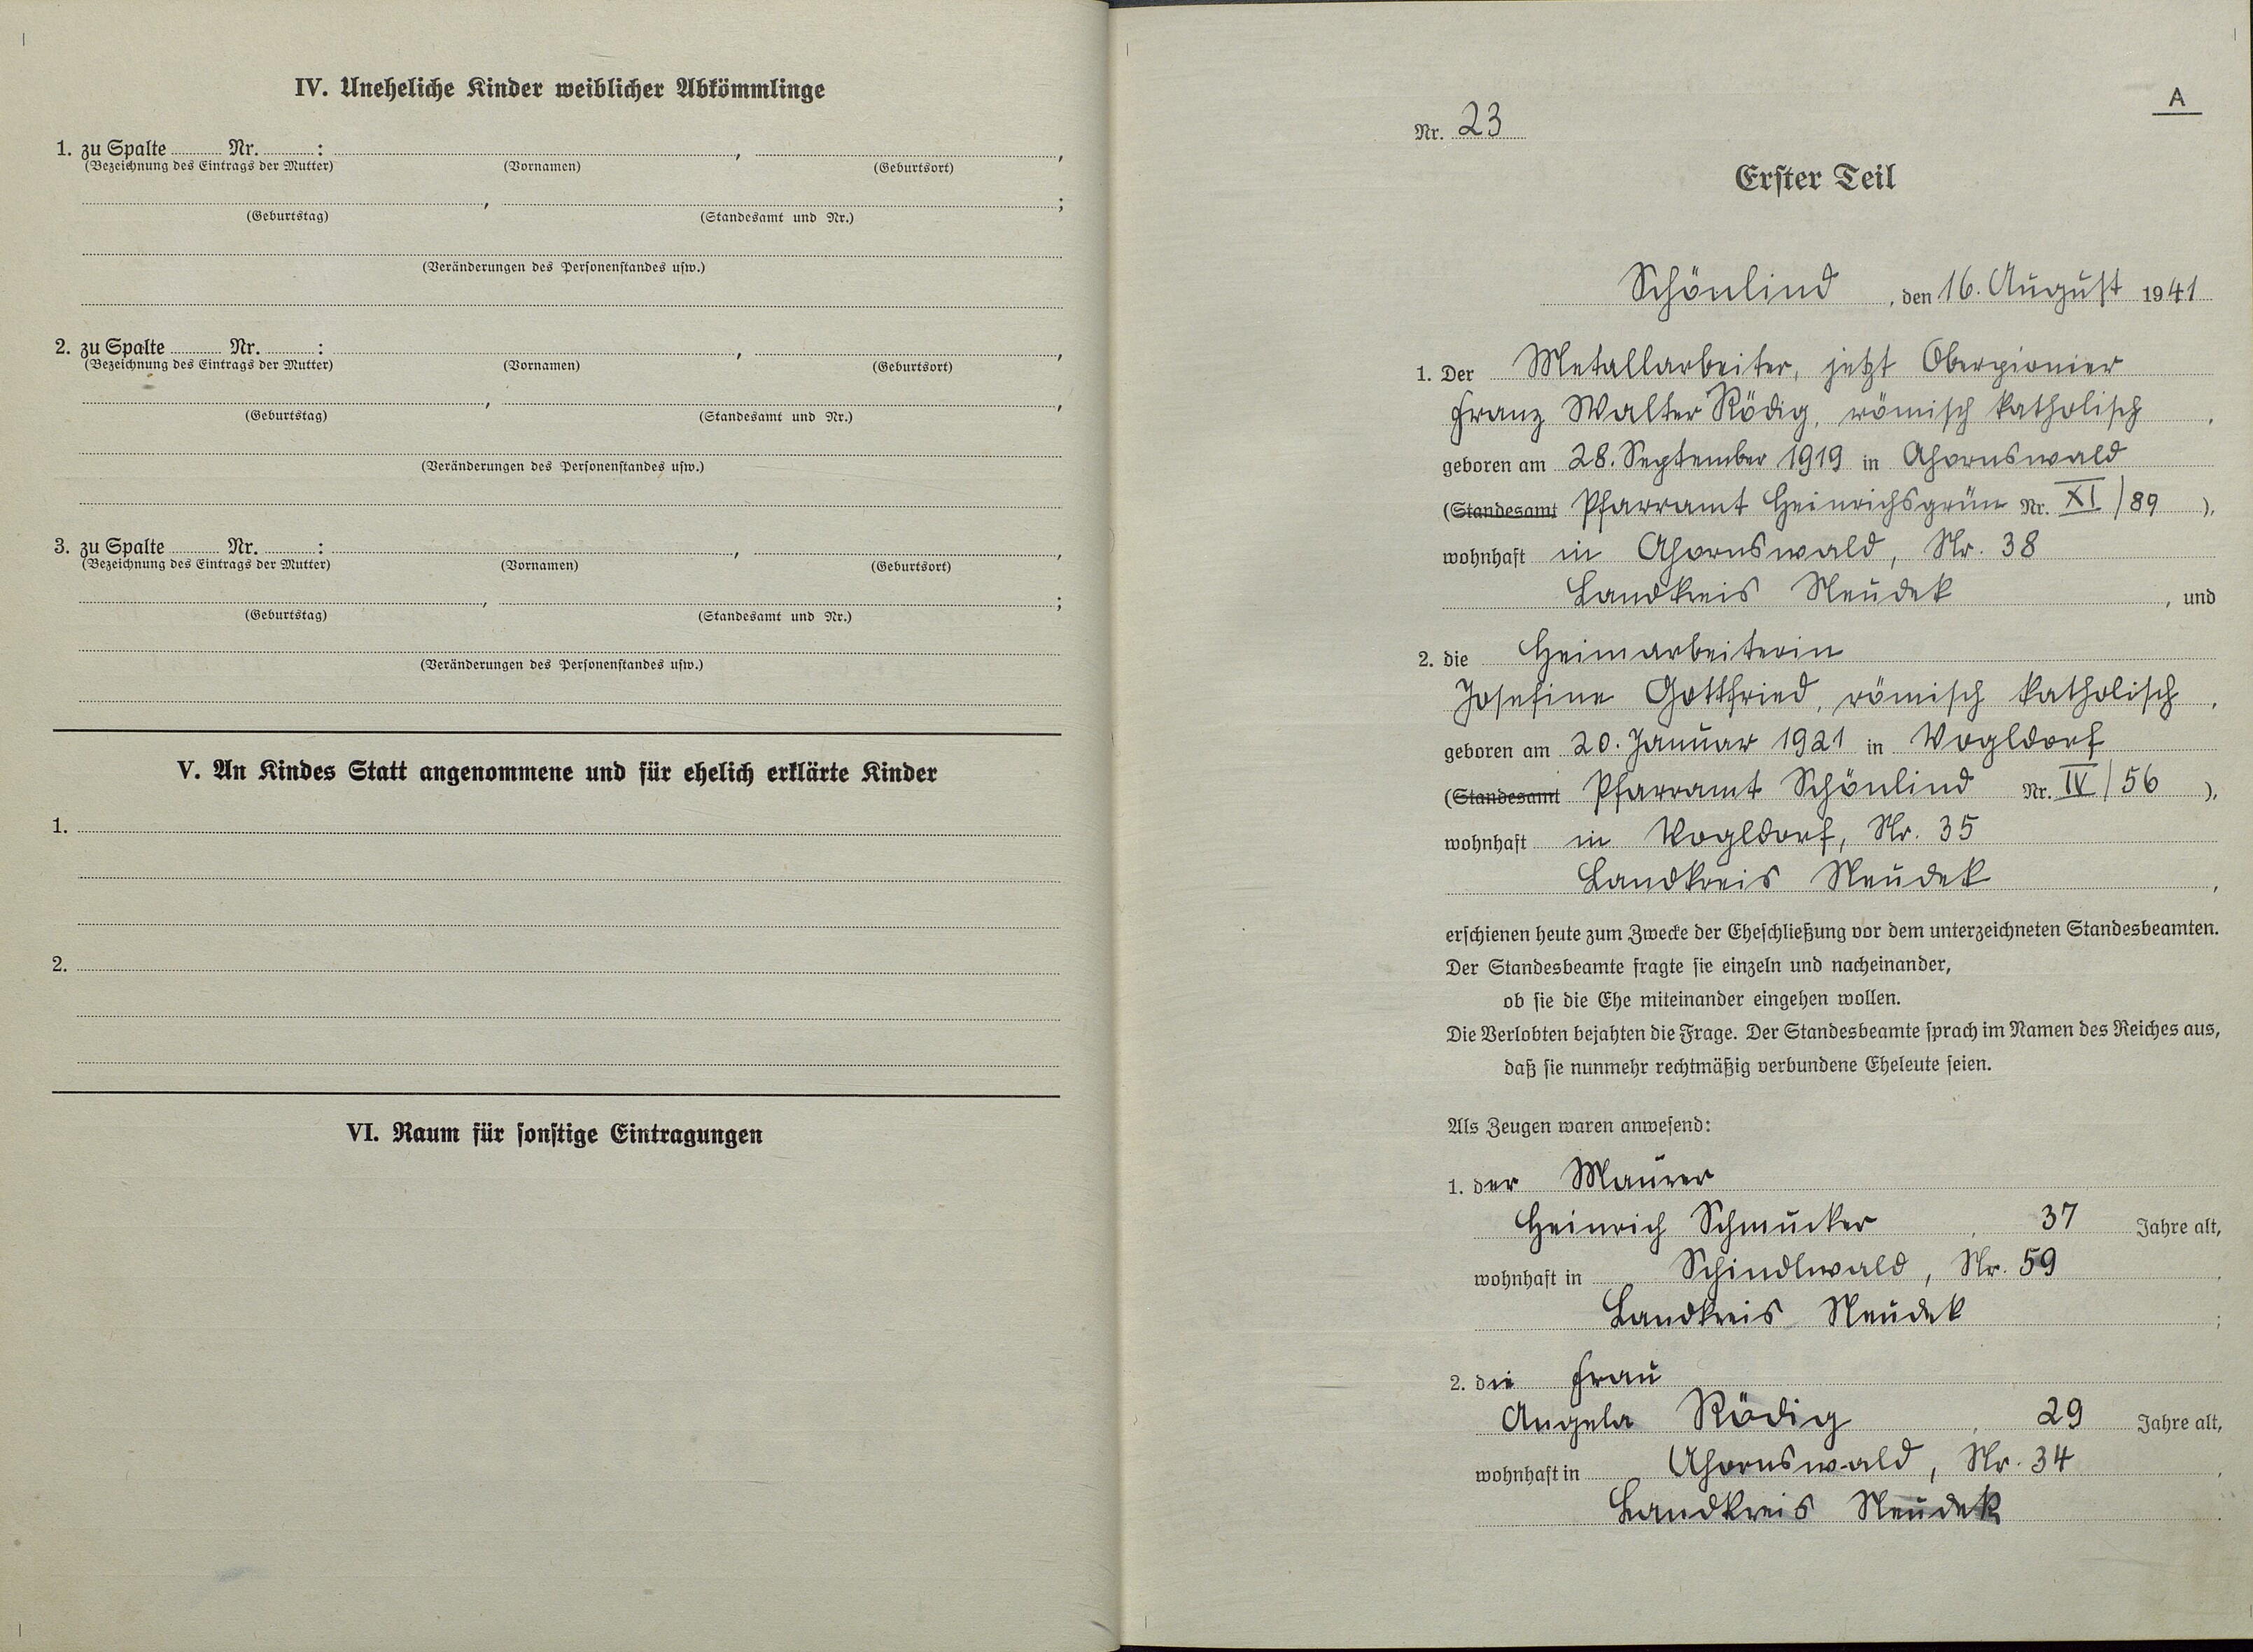 IV. Uneheliche Kinder weiblicher Abkömmlinge
1. zu Spalte Nr. : , ,
(Bezeichnung des Eintrags der Mutter) (Vornamen) (Geburtsort)
, ;
(Geburtstag) (Standesamt und Nr.)
(Veränderungen des Personenstandes usw.)
2. zu Spalte Nr. : , ,
(Bezeichnung des Eintrags der Mutter) (Vornamen) (Geburtsort)
, ,
(Geburtstag) (Standesamt und Nr.)
(Veränderungen des Personenstandes usw.)
3. zu Spalte Nr. : , ,
(Bezeichnung des Eintrags der Mutter) (Vornamen) (Geburtsort)
, ;
(Geburtstag) (Standesamt und Nr.)
(Veränderungen des Personenstandes usw.)
V. An Kindes Statt angenommene und für ehelich erklärte Kinder
1.
2.
VI. Raum für sonstige Eintragungen
A
Nr. 23
Erster Teil
Schönlind, den 16. August 1941
1. Der Metallarbeiter, jetzt Oberpionier
Franz Walter Rödig, römisch katholisch,
geboren am 28. September 1919 in Ahornswald
(Standesamt Pfarramt Heinrichsgrün Nr. XI/89),
wohnhaft in Ahornswald, Nr. 38
Landkreis Neudek, und
2. die Heimarbeiterin
Josefine Gottfried, römisch katholisch,
geboren am 20. Januar 1921 in Vogldorf
(Standesamt Pfarramt Schönlind Nr. IV/56),
wohnhaft in Vogldorf, Nr. 35
Landkreis Neudek,
erschienen heute zum Zwecke der Eheschließung vor dem unterzeichneten Standesbeamten.
Der Standesbeamte fragte sie einzeln und nacheinander,
ob sie die Ehe miteinander eingehen wollen.
Die Verlobten bejahten die Frage. Der Standesbeamte sprach im Namen des Reiches aus,
daß sie nunmehr rechtmäßig verbundene Eheleute seien.
Als Zeugen waren anwesend:
1. der Maurer
Heinrich Schmucker, 37 Jahre alt,
wohnhaft in Schindlwald, Nr. 59,
Landkreis Neudek;
2. die Frau
Angela Rödig, 29 Jahre alt,
wohnhaft in Ahornswald, Nr. 34,
Landkreis Neudek.